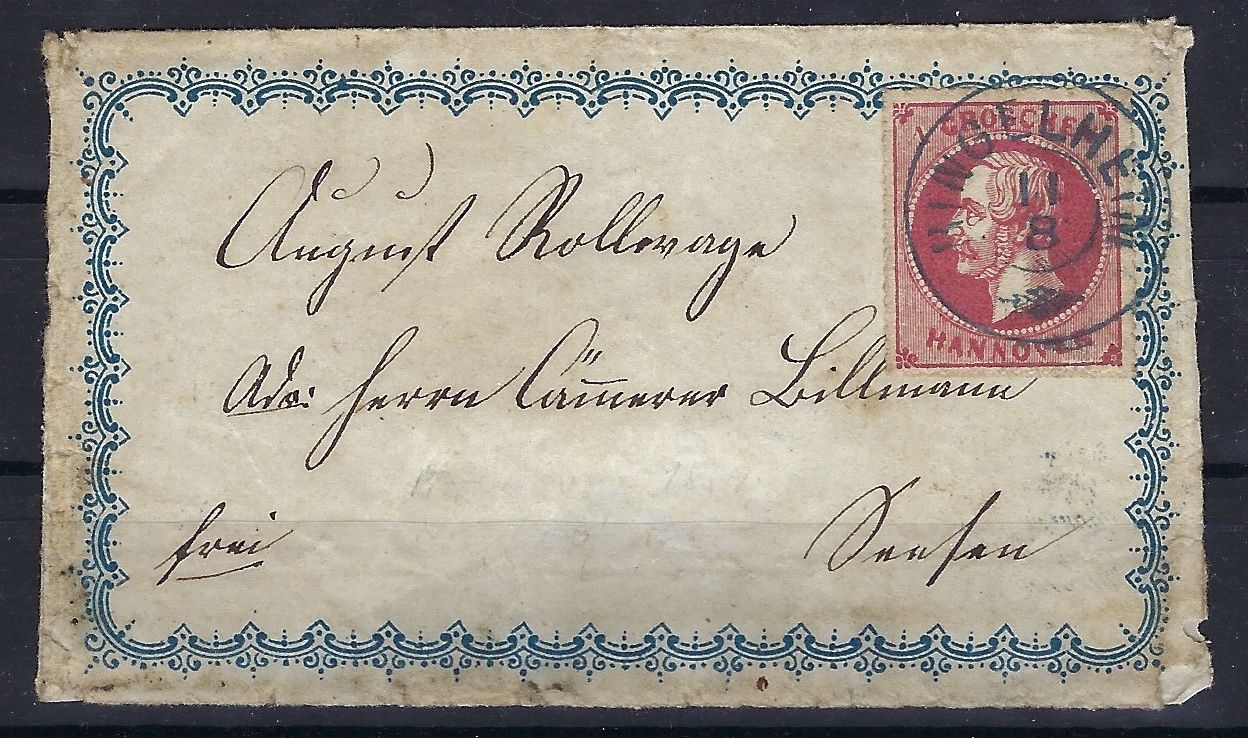 1 GROSCHEN
HANNOVER
RINGELHEIM
11
8
August Rollwage
Adr: Herrn Cämmerer Billmann
frei
Seesen